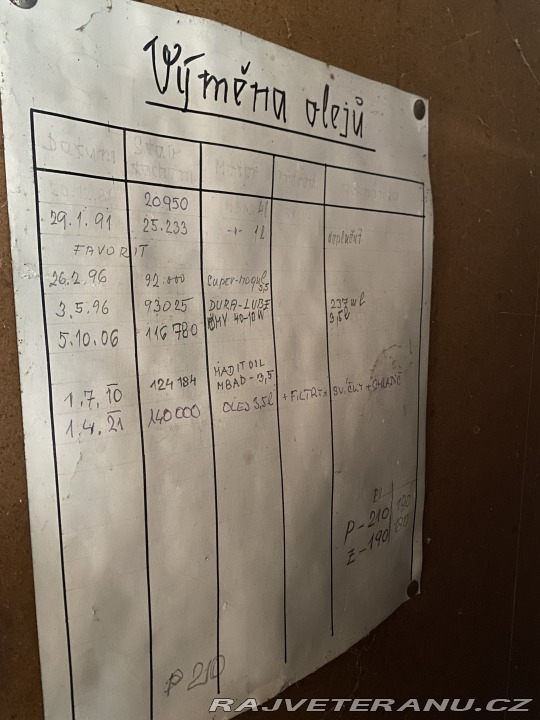 Výměna olejů
Datum Stav Motor
20950 4l
29.1.91 25.233 -"- 1L doplnění
FAVORIT
26.2.96 92.000 super-mogul 3,5
3.5.96 93025 DURA-LUBE 237 ml
5.10.06 116780 40-10W 3,5l
1.7.10 124184 MADIT OIL M8AD-3,5
1.4.21 140000 OLEJ 3,5l + FILTR + SVÍČKY + CHLADIČ
P-210 190
Z-190 190
P 210
RAJVETERANU.CZ